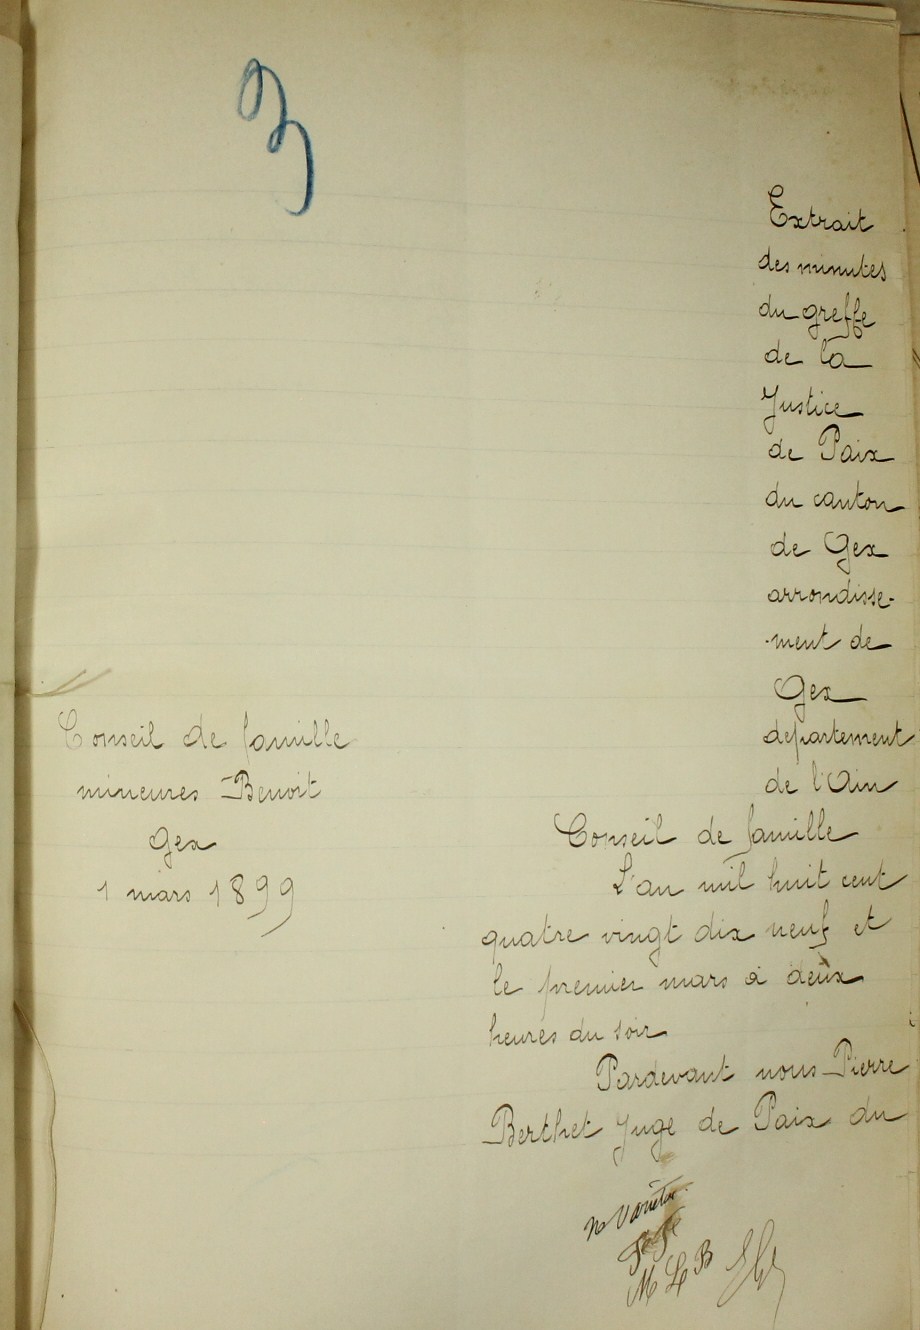 3
Extrait
des minutes
du greffe
de la
Justice
de Paix
du canton
de Gex
arrondisse-
-ment de
Gex
departement
de l'Ain
Conseil de famille
mineures Benoit
Gex
1 mars 1899
Conseil de famille
L'an mil huit cent
quatre vingt dix neuf et
le premier mars à deux
heures du soir
Pardevant nous Pierre
Berthet Juge de Paix du
ne varietur